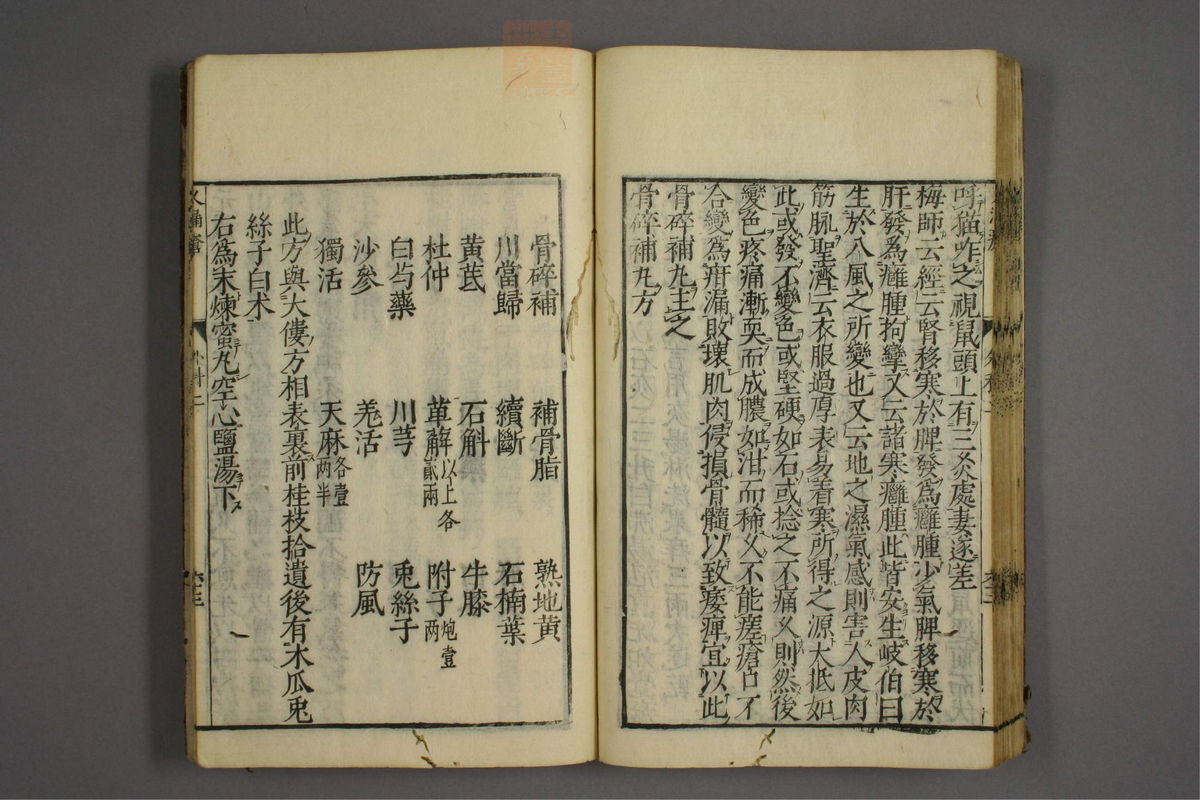 呼猫咋之視鼠頭上有三灸處妻遂差
梅師云經云腎移寒於脾發爲癰腫少氣脾移寒於
肝發爲癰腫拘攣又云諸寒癰腫此皆安生岐伯曰
生於八風之所變也又云地之濕氣感則害人皮肉
筋脉聖濟云衣服過厚表易着寒所得之源大抵如
此或發不變色或堅硬如石或捻之不痛久則然後
變色疼痛漸耎而成膿如泔而稀久不能瘥瘡口不
合變爲疳漏敗壞肌肉侵損骨髓以致痿痺宜以此
骨碎補丸主之
骨碎補丸方
骨碎補 補骨脂 熟地黄
川當歸 續斷 石楠葉
黄茋 石斛 牛膝
杜仲 萆薢以上各貳兩 附子炮壹兩
白芍藥 川芎 兎絲子
沙參 羌活 防風
獨活 天麻各壹兩半
此方與大僂方相表裏前桂枝拾遺後有木瓜兎
絲子白术
右爲末煉蜜丸空心鹽湯下